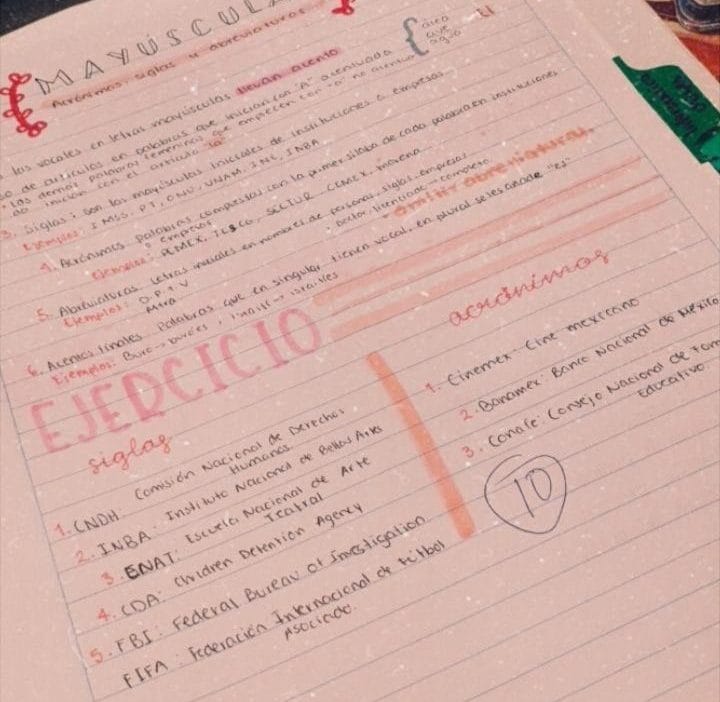 MAYÚSCULA
Acrónimos, siglas y abreviaturas
las vocales en letras mayúsculas llevan acento
de artículos en palabras que inician con "A" acentuada { área
ave
agua
las demás palabras femeninas que empiecen con "a" no
inician con el artículo "la"
3. Siglas: son las mayúsculas iniciales de instituciones o empresas
Ejemplos: IMSS, PT, ONU, UNAM, INE, INBA
4. Acrónimos palabras compuestas con la primer sílaba de cada palabra en instituciones
o empresas
Ejemplos: PEMEX, TESCO, SECTUR, CEMEX, morena
5. Abreviaturas letras iniciales en nombres de personas, siglas, empresas
Ejemplos: D.P.T.V.
Mtra.
* Doctor, licenciado → completo
* omitir abreviaturas
6. Acentos finales Palabras que en singular tienen vocal, en plural se les añade "es"
Ejemplos: → israelíes
EJERCICIO
siglas
1. CNDH Comisión Nacional de Derechos
Humanos.
2. INBA: Instituto Nacional de Bellas Artes
3. ENAT: Escuela Nacional de Arte
Teatral
4. CDA: Children Detention Agency
5. FBI: Federal Bureau of Investigation
FIFA: Federación Internacional de Fútbol
Asociado.
acrónimos
1. Cinemex: Cine mexicano
2. Banamex: Banco Nacional de México
3. Conafe: Consejo Nacional de Fom
Educativo.
10